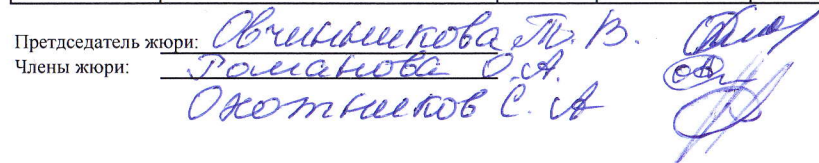 Претдседатель жюри: Овчинникова Т. В.
Члены жюри: Романова О.А.
Охотников С. А